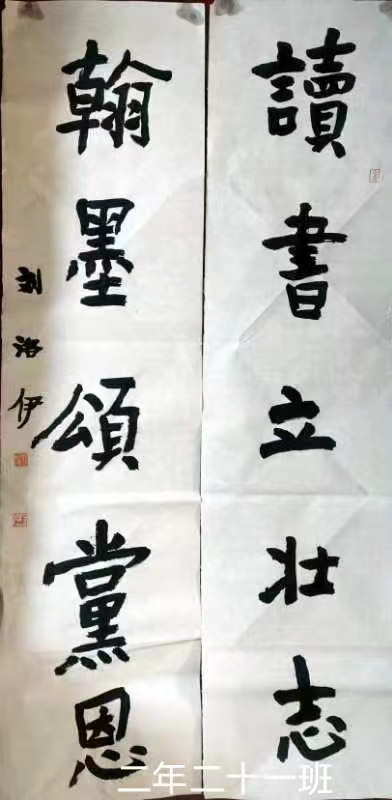 讀書立壯志
翰墨頌黨恩
刘洛伊
二年二十一班